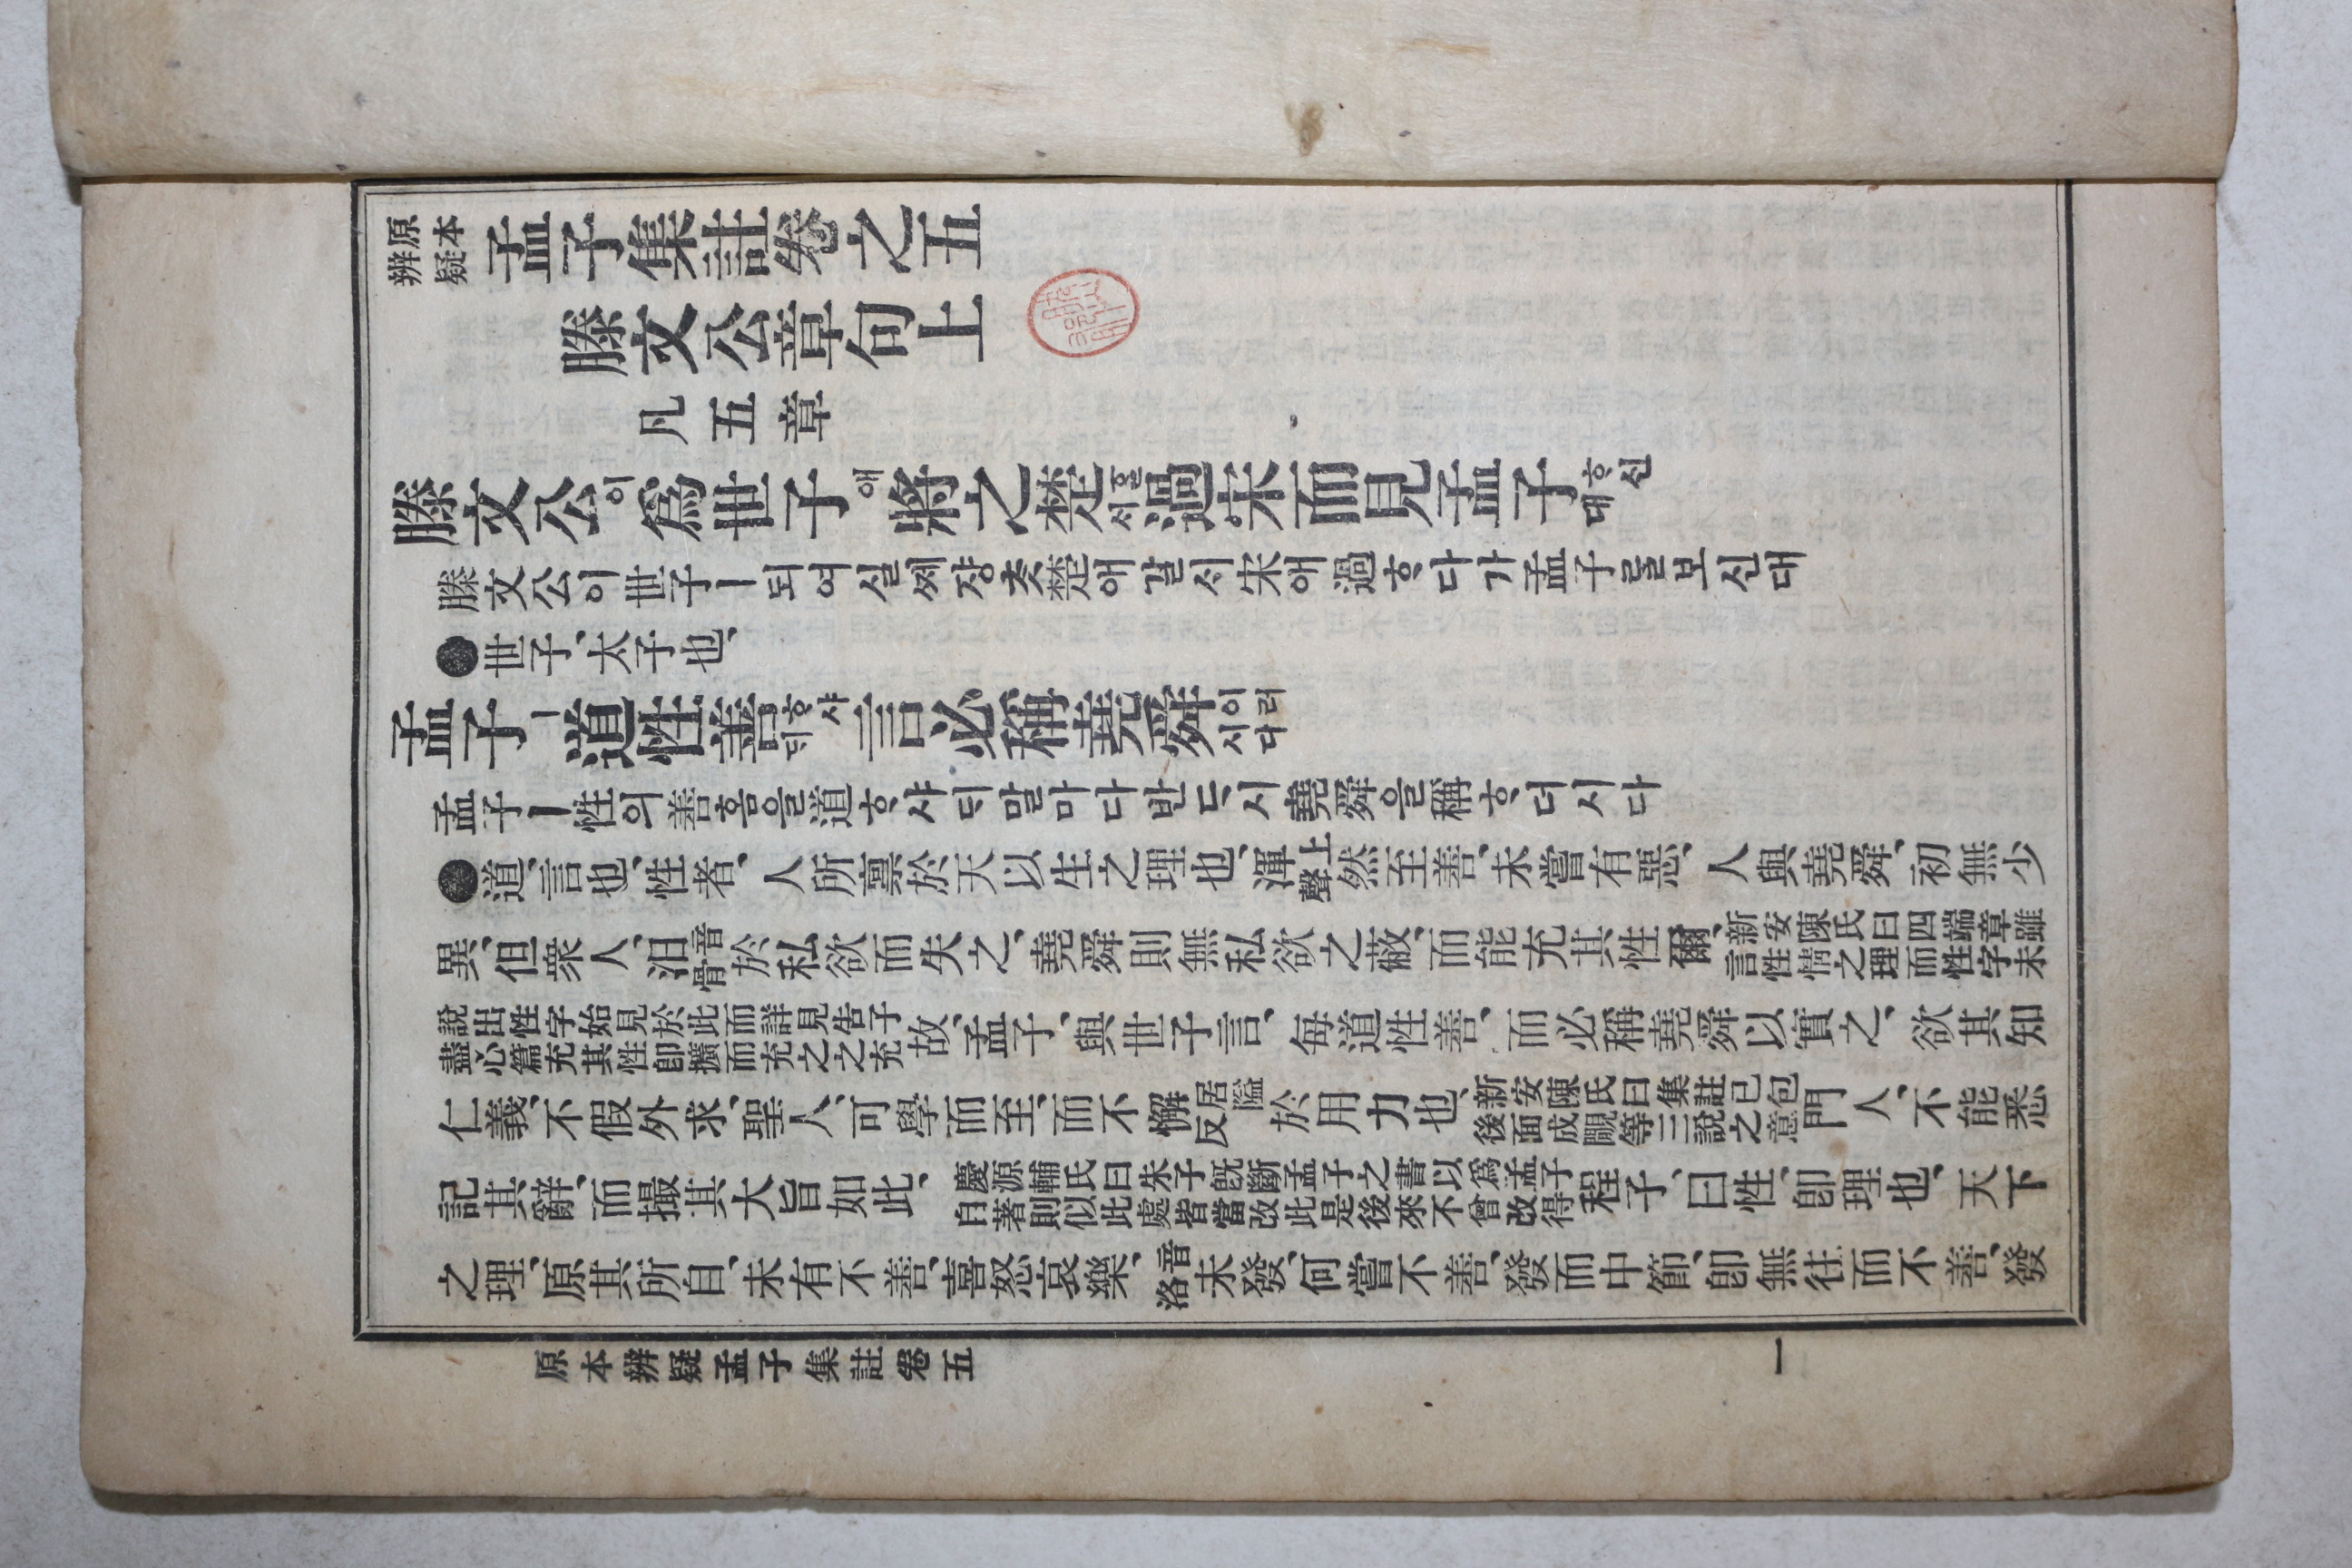 原本辨疑孟子集註卷之五
滕文公章句上
凡五章
滕文公이爲世子애將之楚ᄒᆞᆯ서過宋而見孟子ᄒᆞ신대
滕文公이世子ㅣ되여실쩨쟝ᄎᆞᆺ楚애갈서宋애過ᄒᆞ다가孟子를보신대
●世子、太子也、
孟子ㅣ道性善ᄒᆞ샤ᄃᆡ言必稱堯舜이러시다
孟子ㅣ性의善홈을道ᄒᆞ샤ᄃᆡ말마다반드시堯舜을稱ᄒᆞ더시다
●道、言也、性者、人所禀於天以生之理也、渾上聲然至善、未嘗有惡、人與堯舜、初無少
異、但衆人、汨音骨於私欲而失之、堯舜則無私欲之蔽、而能充其性爾、新安陳氏曰四端章雖言性情之理而性字未
說出性字始見於此而詳見告子盡心篇充其性卽擴而充之之充故、孟子、與世子言、每道性善、而必稱堯舜以實之、欲其知
仁義、不假外求、聖人、可學而至、而不懈居隘反於用力也、新安陳氏曰集註已包後面成覵等三說之意門人、不能悉
記其辭、而撮其大旨如此、慶源輔氏曰朱子旣斷孟子之書以爲孟子自著則似此處皆當改此是後來不曾改得程子、曰性、卽理也、天下
之理、原其所自、未有不善、喜怒哀樂、音洛未發、何嘗不善、發而中節、卽無往而不善、發
原本辨疑孟子集註卷五 一